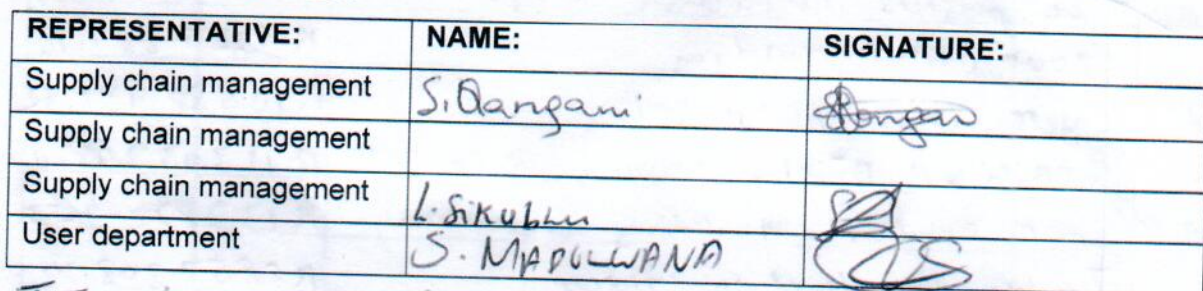 REPRESENTATIVE: NAME: SIGNATURE:
Supply chain management S. Qangani
Supply chain management
Supply chain management L. Sikubhu
User department S. MADULWANA